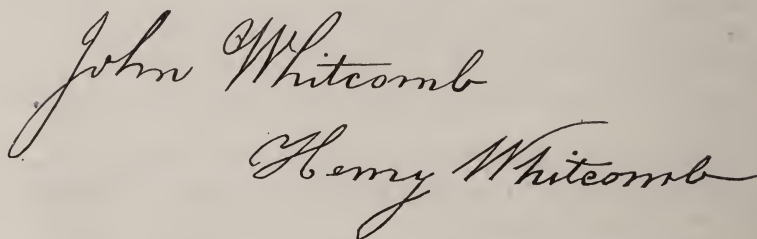 John Whitcomb
Henry Whitcomb